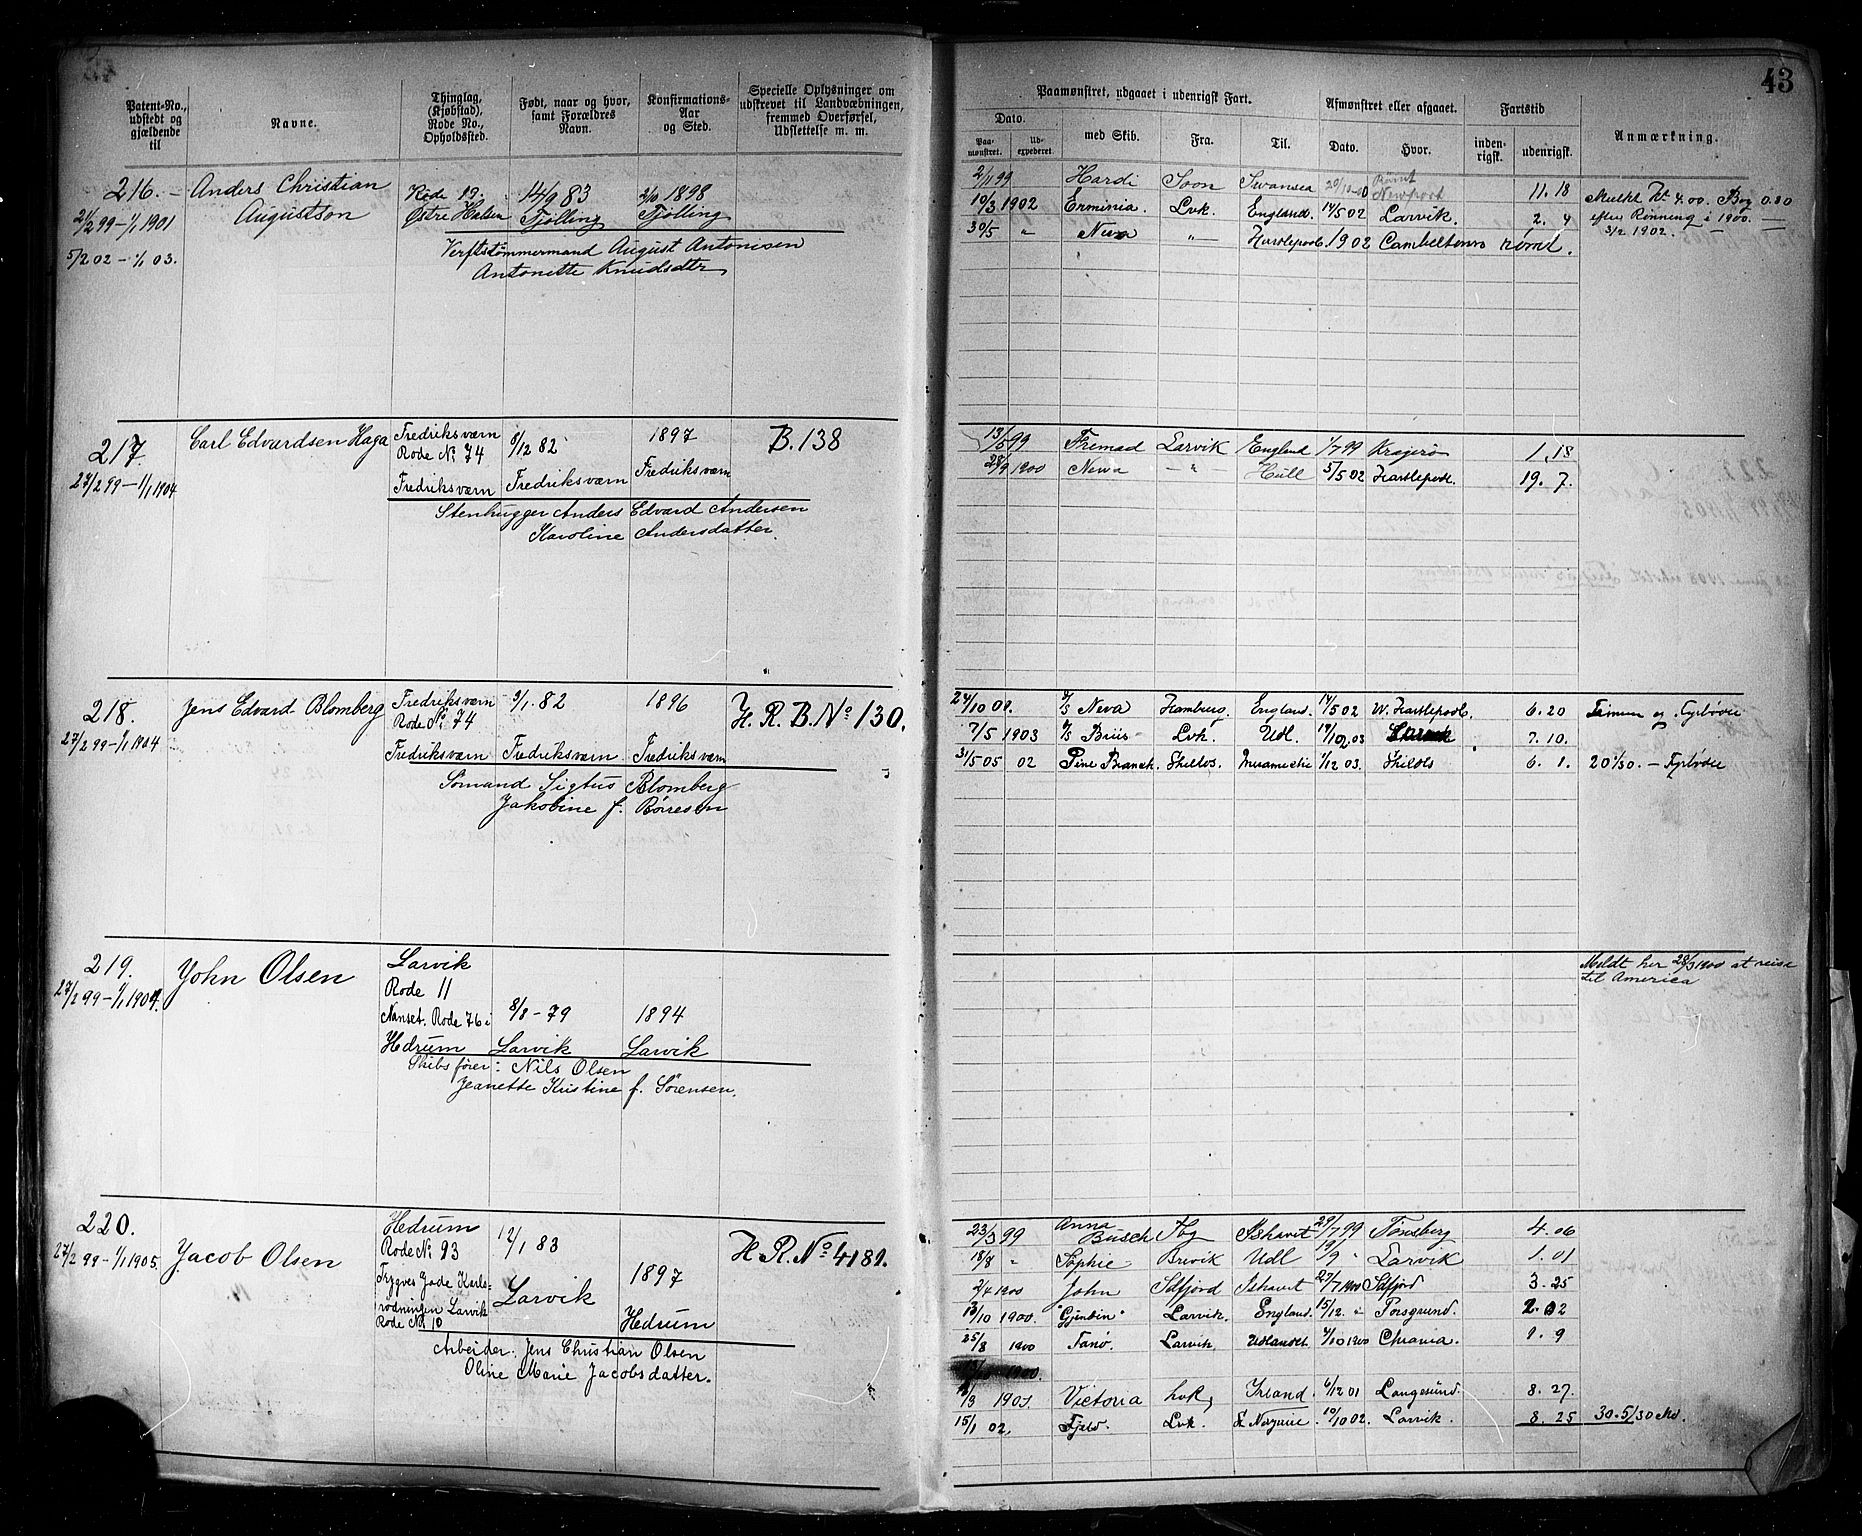 43
Patent-No., udstedt og gjældende til
Navne.
Thinglag, (Kjøbstad), Rode No., Opholdssted.
Født, naar og hvor, samt Forældres Navn.
Konfirmations-Aar og Sted.
Specielle Oplysninger om udskrevet til Landvæbningen, fremmed Overførsel, Udslettelse m. m.
Paamønstret, udgaaet i udenrigsk Fart.
Afmønstret eller afgaaet.
Fartstid
Anmærkning.
Dato.
med Skib.
Fra.
Til.
Dato.
Hvor.
inden-rigsk.
udenrigsk.
Paa-mønstret.
Ud-expederet.
216. Anders Christian Augustson
21/2 99 – 1/1 1901
5/2 02 – 1/1 03.
Rode 19. Østre Halsen
14/9 83 Tjølling
2/10 1898 Tjølling
Verftstømmermand August Antonisen
Antonette Knudsdtr
2/11 99 Hardi Soon Swansea 20/10-00 Rømt Newport 11. 18
19/3 1902 Erminia. Lvk. England. 14/5 02 Larvik. 2. 4
30/5 " Newa " Hartlepool. 1902 Cambeltown rømt.
Mulkt Kr 4.00. Bog 0.80
efter Rømning i 1900.
3/2 1902.
217. Carl Edvardsen Haga
27/2 99 – 1/1 1904
Fredriksværn Rode No. 74
Fredriksværn
8/12 82 Fredriksværn
1897 Fredriksværn
B. 138
Stenhugger Anders Edvard Andersen
Karoline Andersdatter.
13/5 99 Fremad Larvik England 1/7 99 Kragerø 1. 18
28/9 1900 Newa " Hull 5/5 02 Hartlepool. 19. 7.
218. Jens Edvard Blomberg
27/2 99 – 1/1 1904
Fredriksværn Rode No. 74
Fredriksværn
9/1. 82 Fredriksværn
1896 Fredriksværn
H. R. B. No 130.
Sømand Sigtus Blomberg
Jakobine f. Børresen
S/S Neva Hamburg. England. 14/5 02 W. Hartlepool. 6. 20
7/5 1903 S/S Briis Lvk. Udl. 7. 10.
31/5 05 02 Pine Branch. 1/12 03. Shields 6. 1. – Fyrbøder
219. John Olsen
27/2 99 – 1/1 1904.
Larvik
Rode 11
Nanset. Rode 76 i
Hedrum
8/8 – 79 Larvik
1894 Larvik
Skibsfører: Nils Olsen
Jeanette Kristine f. Sörensen.
Meldt her 28/3 1900 at reise
til America
220. Jacob Olsen
27/2 99 – 1/1 1905.
Hedrum
Rode No. 93
Trygves Gade Karls-
Larvik
Rode No. 10
12/1 83 Larvik
1897 Hedrum
H. R. No 4181.
Arbeider: Jens Christian Olsen
Oline Marie Jacobsdatter.
23/3 99 Anna Busch Tbg Ishavet 29/7 99 Tønsberg 4. 06
18/8 " Sophie Brevik Udl 19/9 " Larvik 1. 01
2/4 1900 John Sdfjord Ishavet 27/7 1900 Sdfjord 3. 25
13/10 1900. "Gjendin" Larvik. England. 15/12. " Porsgrund. 2. 02
25/8 1900 Fanø. Larvik. Udlandet 4/10 1900 Chrania. 1. 9
Victoria Lvk. Irland. 6/12 01 Langesund. 8. 27.
15/1 02. Fjeld. Lvk. 10/10 02. Larvik. 8. 25 30. 5/30 Md.